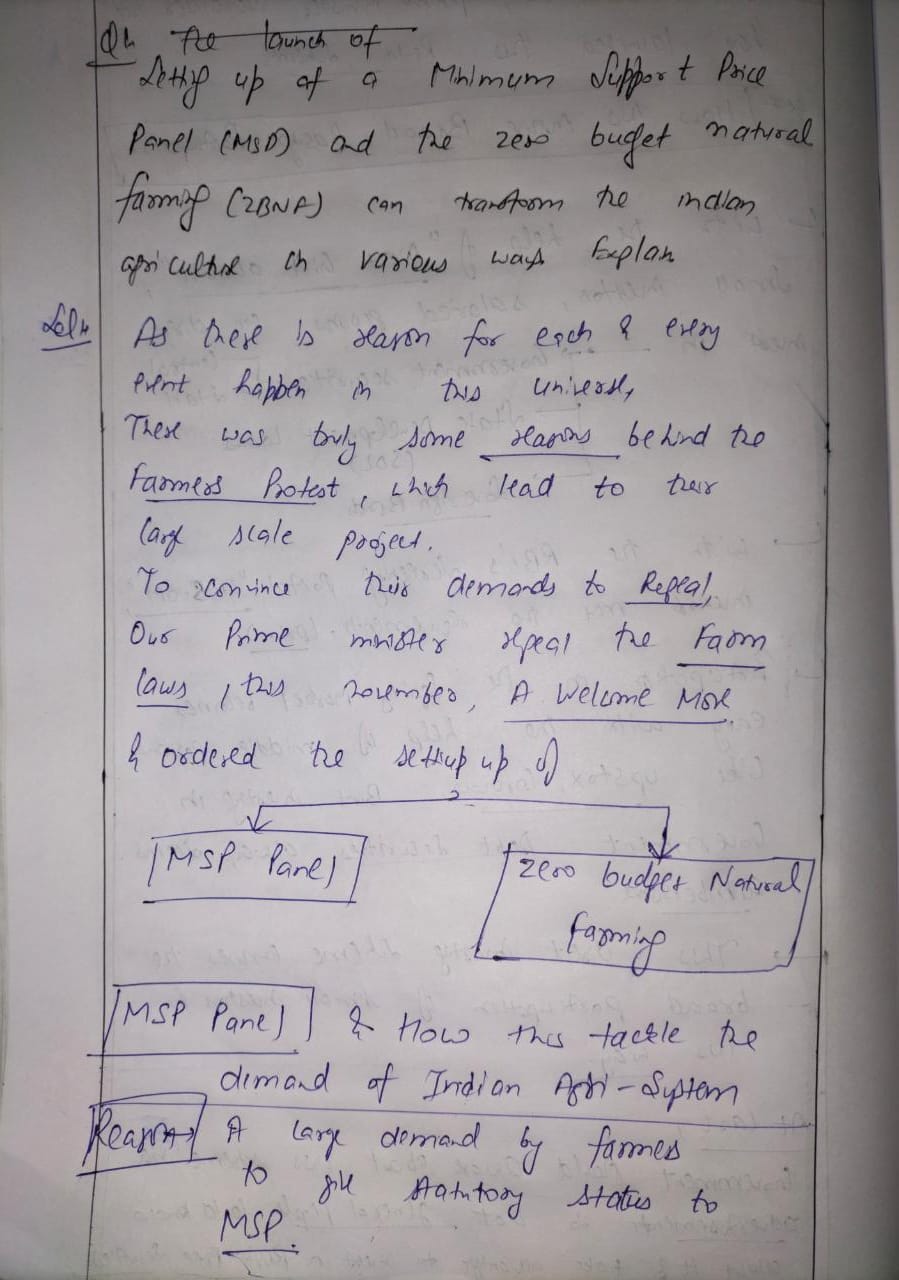 Qn The launch of
Setting up of a Minimum Support Price
Panel (MSP) and the zero budget natural
farming (ZBNF) can transform the indian
agriculture in various ways Explain
Soln As there is reason for each & every
event happen in this universe,
There was truly some reasons behind the
Farmers Protest, which lead to their
large scale project.
To convince their demands to Repeal,
Our Prime minister repeal the Farm
laws, this november, A Welcome Move
& ordered the settup up of
MSP Panel
Zero budget Natural
farming
MSP Panel & How this tackle the
demand of Indian Agri-System
Reasons A large demand by farmers
to give statutory status to
MSP.